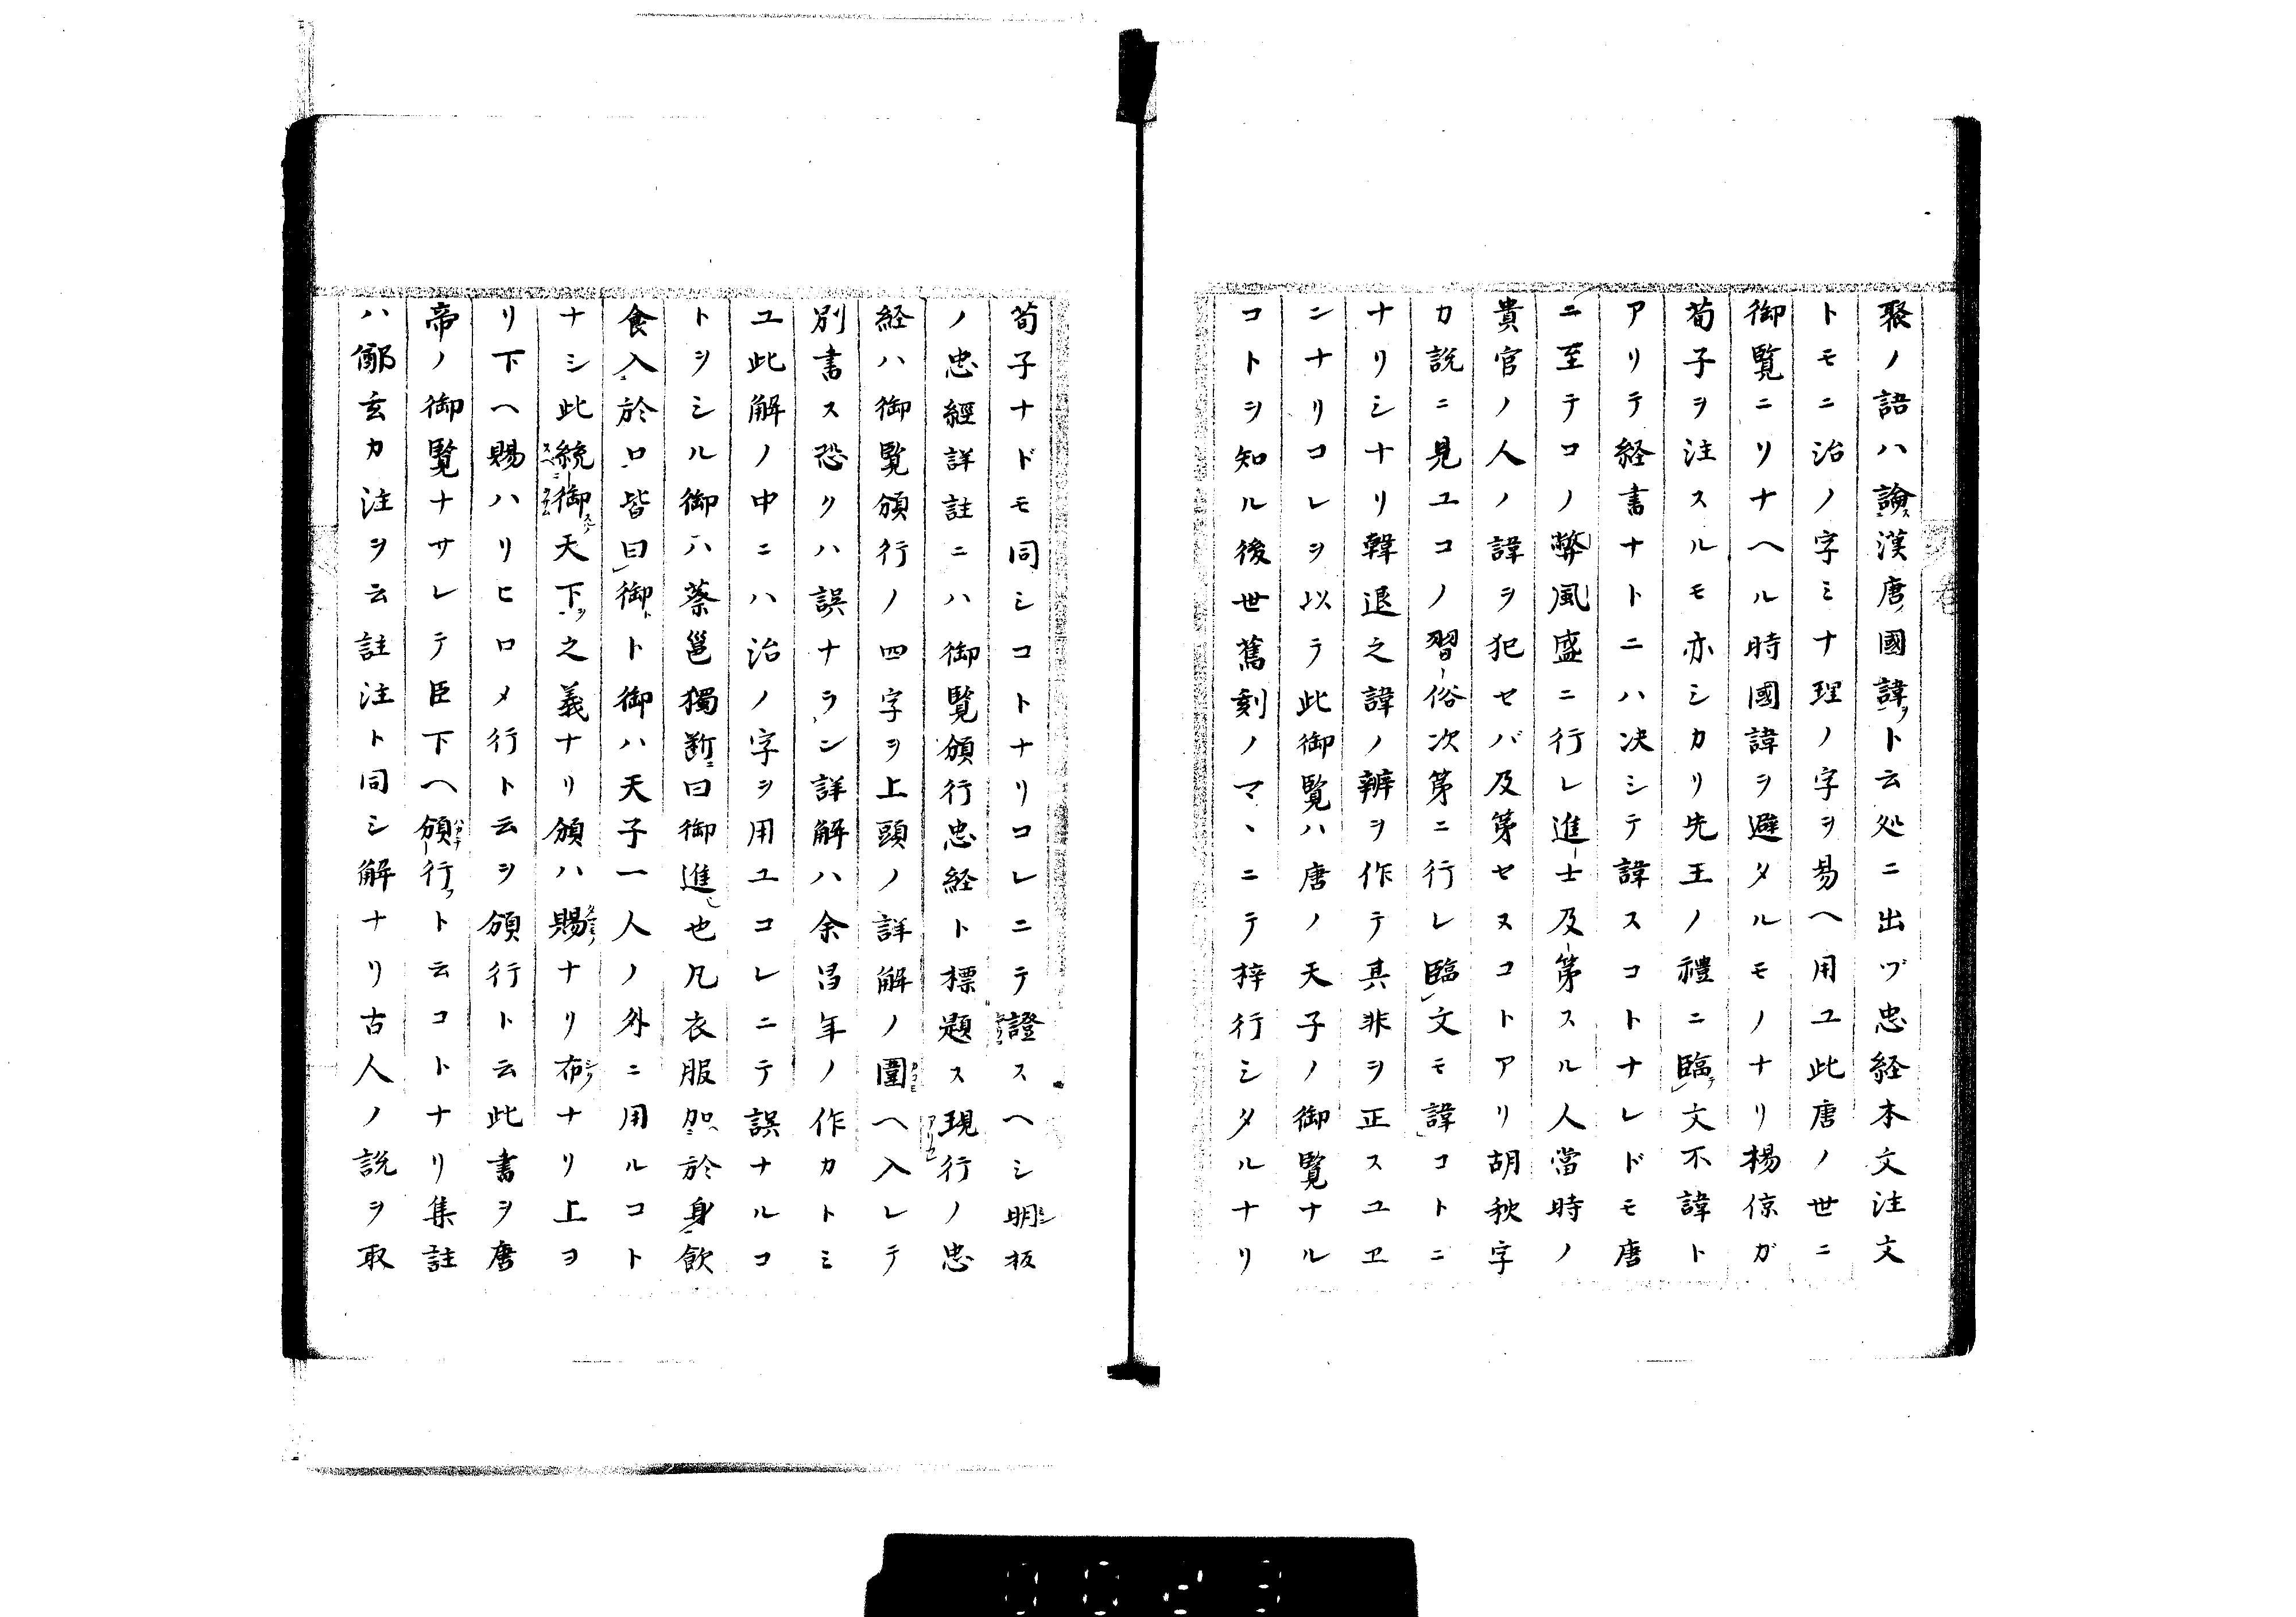 聚ノ語ハ論漢唐國諱ヲト云処ニ出ヅ忠経本文注文
トモニ治ノ字ミナ理ノ字ヲ易ヘ用ユ此唐ノ世ニ
御覧ニリナヘル時國諱ヲ避タルモノナリ楊倞ガ
荀子ヲ注スルモ亦シカリ先王ノ禮ニ臨文不諱ト
アリテ経書ナトニハ决シテ諱スコトナレドモ唐
ニ至テコノ弊風盛ニ行レ進士及第スル人當時ノ
貴官ノ人ノ諱ヲ犯セバ及第セヌコトアリ胡秋字
カ説ニ見ユコノ習俗次第ニ行レ臨文モ諱コトニ
ナリシナナリ韓退之諱ノ辨ヲ作テ其非ヲ正スユヱ
ンナリコレヲ以ラ此御覧ハ唐ノ天子ノ御覧ナル
コトヲ知ル後世舊刻ノマヽニテ梓行シタルナリ
荀子ナドモ同シコトナリコレニテ證スヘシ明板
ノ忠經詳註ニハ御覧頒行忠経ト標題ス現行ノ忠
経ハ御覧頒行ノ四字ヲ上頭ノ詳解ノ圍ヘ入レテ
別書ス恐クハ誤ナラン詳解ハ余昌年ノ作カトミ
ユ此解ノ中ニハ治ノ字ヲ用ユコレニテ誤ナルコ
トヲシル御ハ蔡邕獨断曰御進也凡衣服加於身飲
食入於口皆曰御ト御ハ天子一人ノ外ニ用ルコト
ナシ此統御天下之義ナリ頒ハ賜ナリ布ナリ上ヲ
リ下ヘ賜ハリヒロメ行ト云ヲ頒行ト云此書ヲ唐
帝ノ御覧ナサレテ臣下ヘ頒行ト云コトナリ集註
ハ鄭玄カ注ヲ云註注ト同シ解ナリ古人ノ説ヲ取